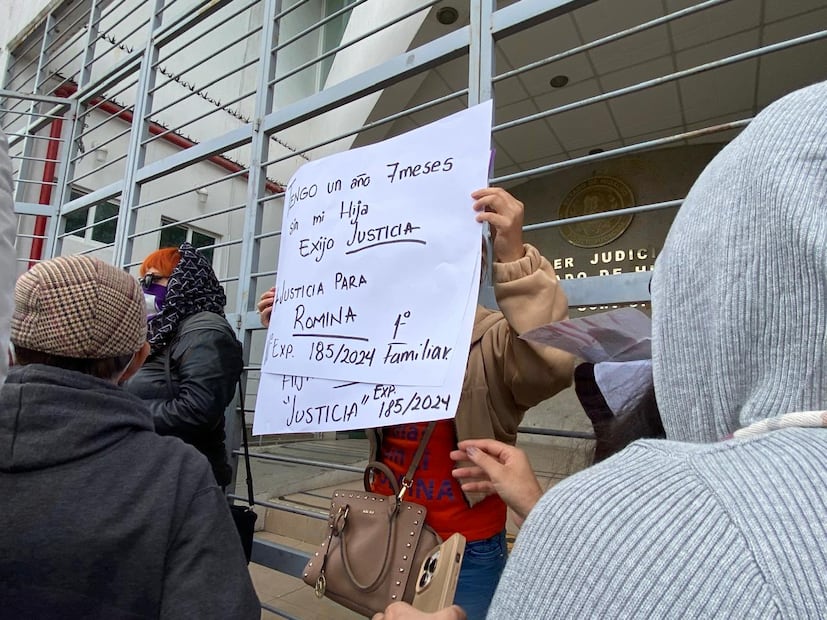 TENGO un año 7meses
sin mi Hija
Exijo JUSTICIA
JUSTICIA PARA
ROMINA
Exp. 185/2024 1º Familiar
"JUSTICIA" Exp. 185/2024
ER JUDICI
ADO DE H